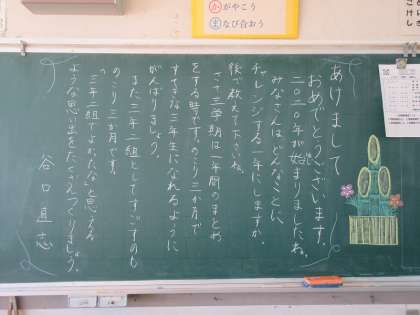 かがやこう
まなび合おう
あけまして
おめでとうございます。
二〇二〇年が始まりましたね。
みなさんはどんなことに、
チャレンジする一年にしますか。
後で教えて下さいね。
さて三学期は一年間のまとめ
をする時です。のこり三か月で
すてきな三年生になれるように
がんばりましょう。
また三年二組としてすごすのも
のこり三か月です。
「三年二組でよかったな」と思える
ような思い出をたくさんつくりましょう。
谷口直志